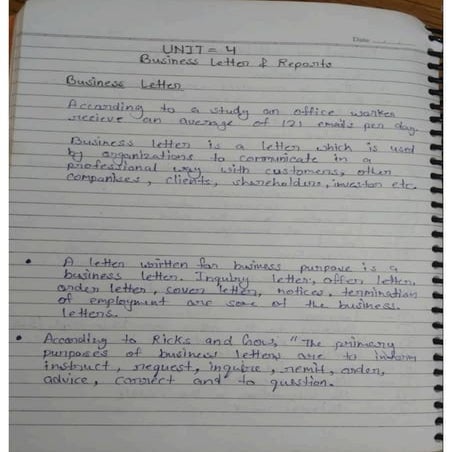 Date
UNIT = 4
Business Letter & Reports
Business Letter
According to a study an office worker
recieve an average of 121 emails per day.
Business letter is a letter which is used
by organizations to communicate in a
professional way with customers, other
companies, clients, shareholders, investor etc.
A letter written for business purpose is a
business letter. Inquiry letter, offer letter,
order letter, cover letter, notices, termination
of employment are some of the business
letters.
According to Ricks and Gow, "The primary
purposes of business letters are to inform
instruct, request, inquire, remit, order,
advice, correct and to qustion.